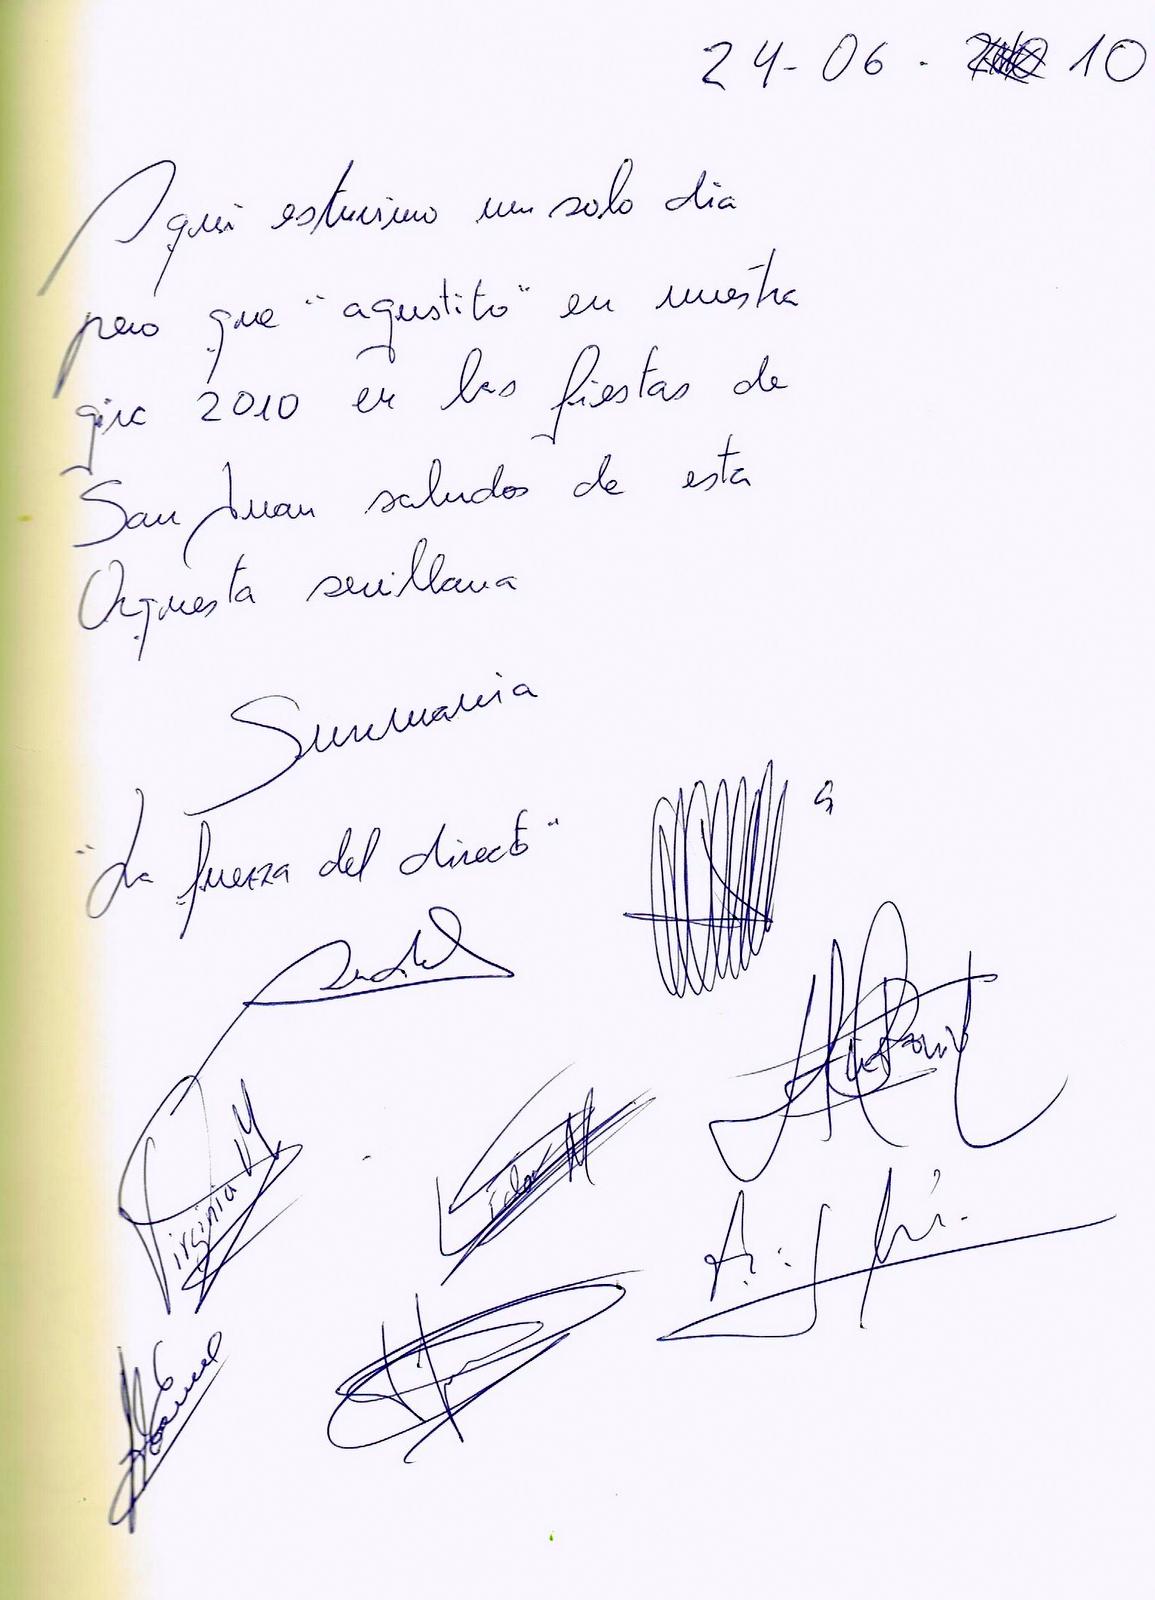 24-06. 10
Aqui estuvimo un solo dia
pero que "agustito" en nuestra
gira 2010 en las fiestas de
San Juan saludos de esta
Orquesta sevillana
"La fuerza del directo"
Virginia M